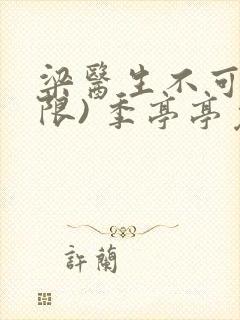 梁醫生不可
限) 季亭亭
許蘭